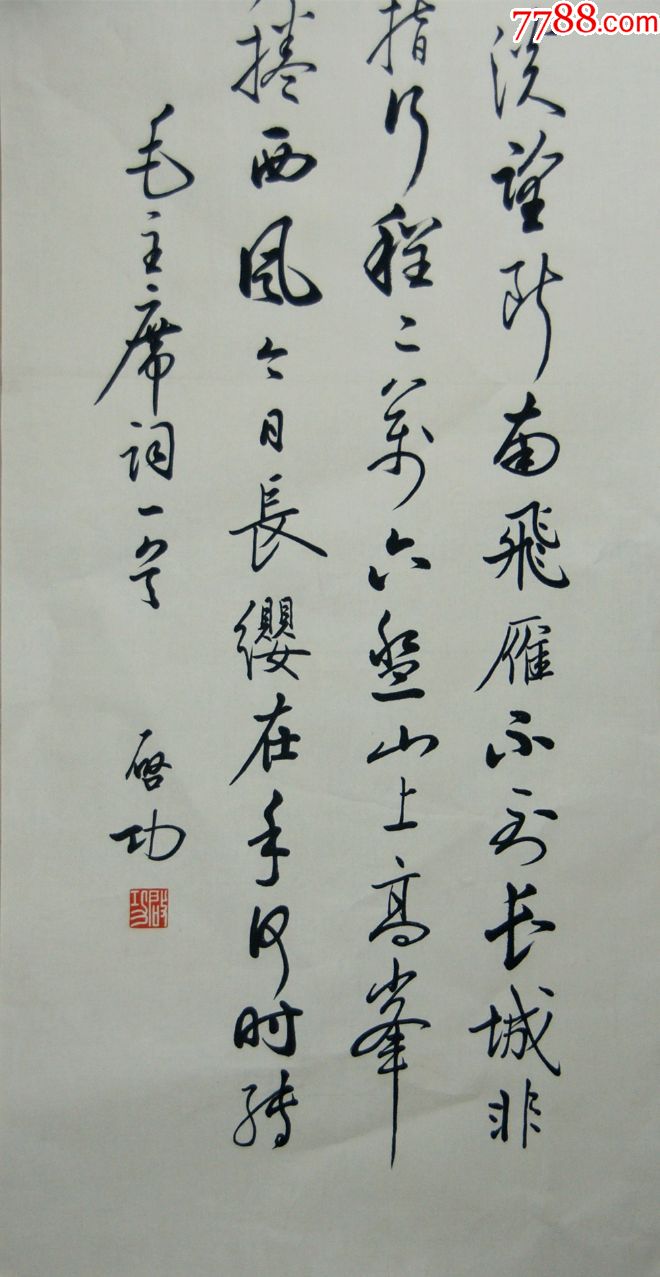 7788.com
淡望断南飛雁不到长城非
指行程二萬六盘山上高峯
捲西風今日長纓在手何时縛
毛主席词一首
啓功
啟功